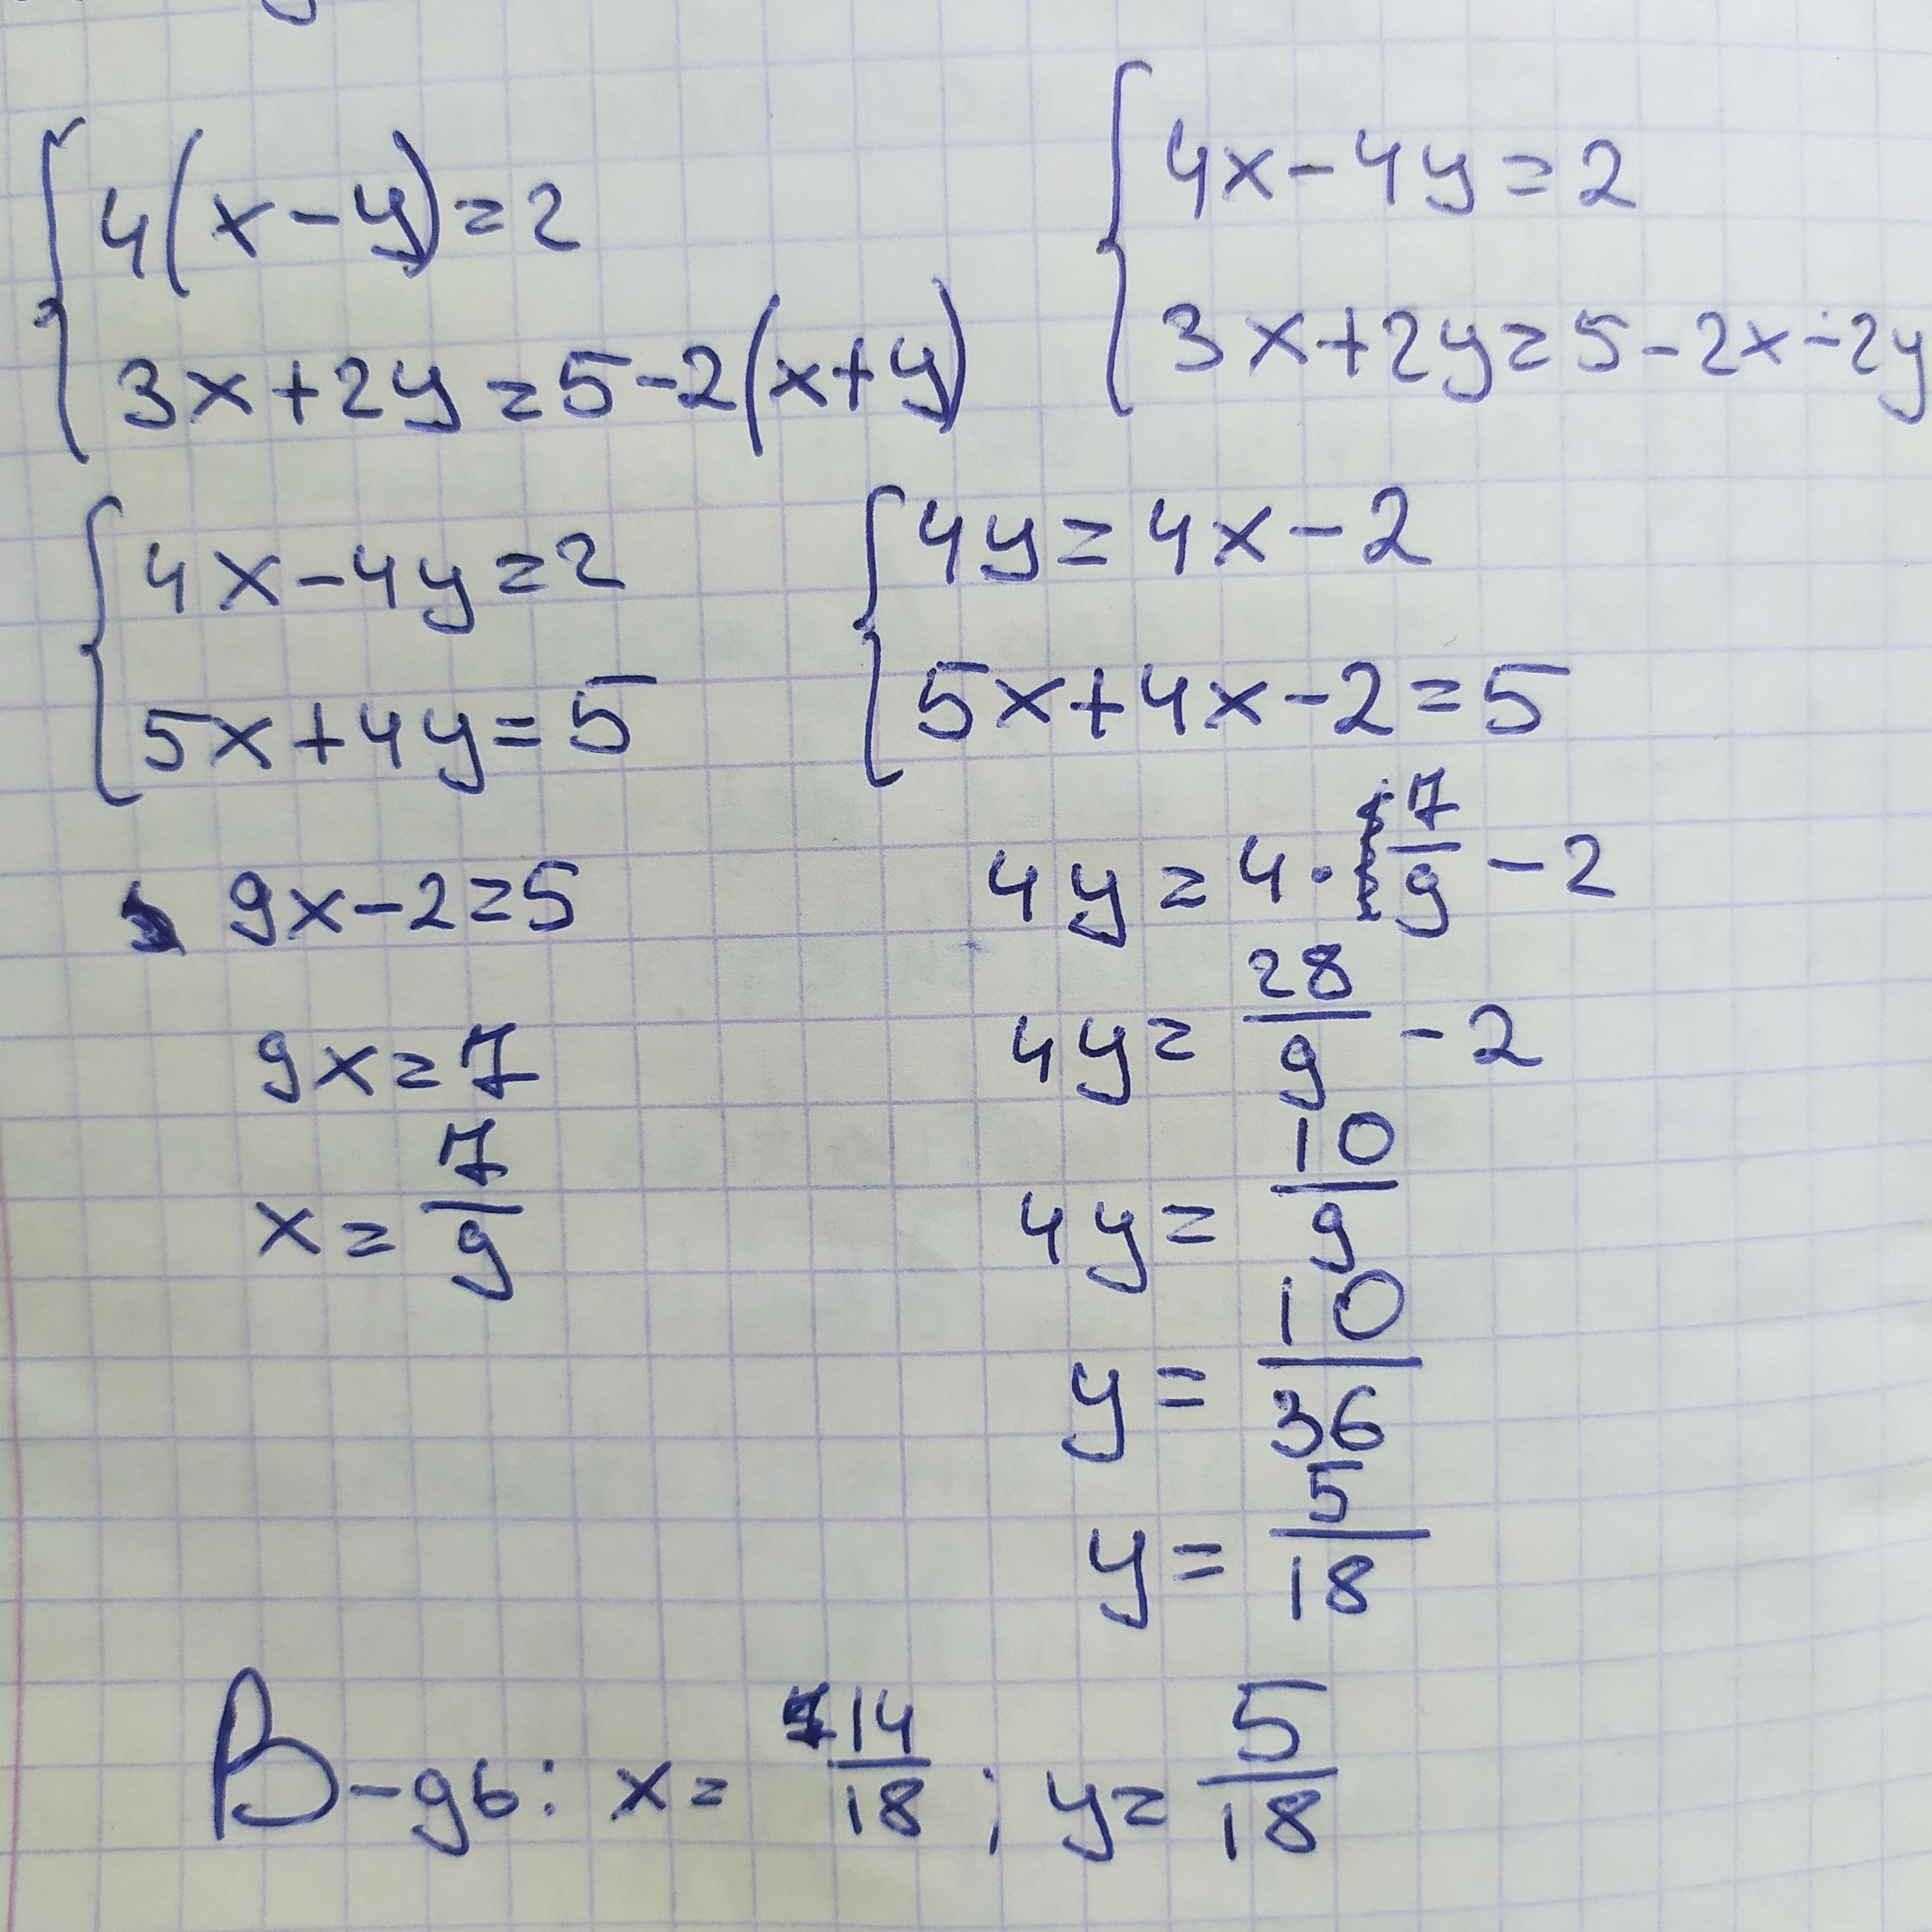 4(x-y)=2
3x+2y=5-2(x+y)
4x-4y=2
3x+2y=5-2x-2y
4x-4y=2
5x+4y=5
4y=4x-2
5x+4x-2=5
9x-2=5
9x=7
x=7/9
4y=4·7/9-2
4y=28/9-2
4y=10/9
y=10/36
y=5/18
В-дь: x=14/18; y=5/18